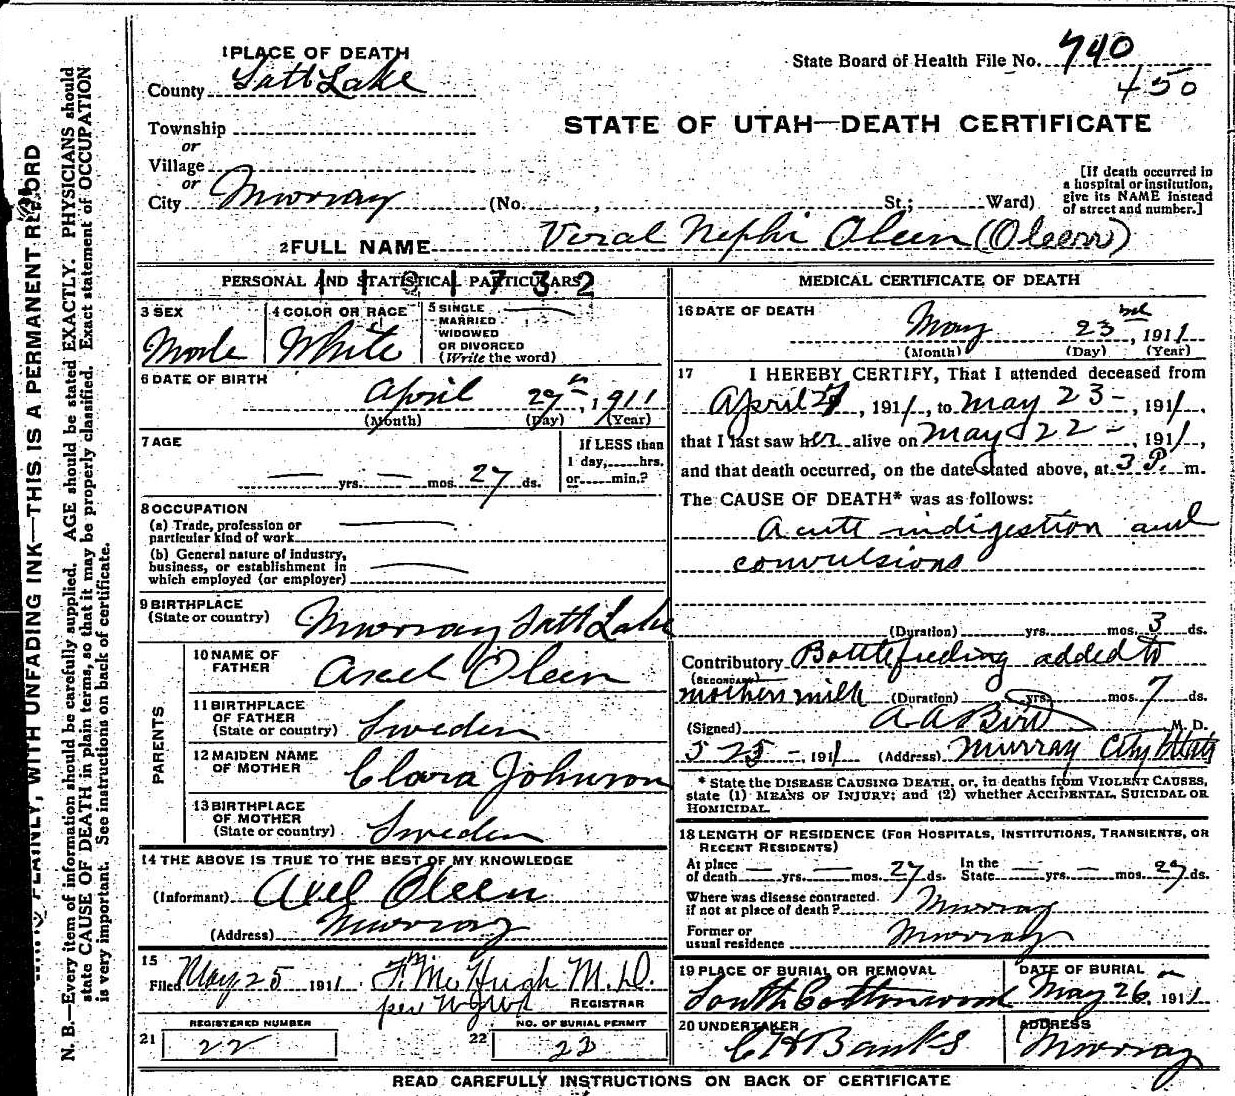 1 PLACE OF DEATH
State Board of Health File No. 740
450
County Salt Lake
STATE OF UTAH—DEATH CERTIFICATE
Township
or
Village
or
City Murray (No. , St.; Ward)
[If death occurred in
a hospital or institution,
give its NAME instead
of street and number.]
2 FULL NAME Veral Nephi Oleen (Oleen)
PERSONAL AND STATISTICAL PARTICULARS
1191732
3 SEX
Male
4 COLOR OR RACE
White
5 SINGLE
MARRIED
WIDOWED
OR DIVORCED
(Write the word)
6 DATE OF BIRTH
April 27th, 1911
(Month) (Day) (Year)
7 AGE
— yrs. — mos. 27 ds.
If LESS than
1 day, hrs.
or min.?
8 OCCUPATION
(a) Trade, profession or
particular kind of work
(b) General nature of industry,
business, or establishment in
which employed (or employer)
9 BIRTHPLACE
(State or country) Murray Salt Lake
PARENTS
10 NAME OF
FATHER Axel Oleen
11 BIRTHPLACE
OF FATHER
(State or country) Sweden
12 MAIDEN NAME
OF MOTHER Clara Johnson
13 BIRTHPLACE
OF MOTHER
(State or country) Sweden
14 THE ABOVE IS TRUE TO THE BEST OF MY KNOWLEDGE
(Informant) Axel Oleen
(Address) Murray
15
Filed May 25 1911 F. McHugh M.D.
per
REGISTRAR
REGISTERED NUMBER
21 22
NO. OF BURIAL PERMIT
22 23
MEDICAL CERTIFICATE OF DEATH
16 DATE OF DEATH
May 23rd, 1911
(Month) (Day) (Year)
17 I HEREBY CERTIFY, That I attended deceased from
April 27, 1911, to May 23 -, 1911,
that I last saw her alive on May 22 -, 1911,
and that death occurred, on the date stated above, at 3 P. m.
The CAUSE OF DEATH* was as follows:
Acute indigestion and
convulsions
(Duration) yrs. mos. 3 ds.
Contributory Bottlefeeding added to
(SECONDARY)
mothers milk (Duration) yrs. mos. 7 ds.
(Signed) A A Bird M. D.
5 25 -, 1911 (Address) Murray City Utah
* State the DISEASE CAUSING DEATH, or, in deaths from VIOLENT CAUSES,
state (1) MEANS OF INJURY; and (2) whether ACCIDENTAL, SUICIDAL OR
HOMICIDAL.
18 LENGTH OF RESIDENCE (FOR HOSPITALS, INSTITUTIONS, TRANSIENTS, OR
RECENT RESIDENTS)
At place
of death — yrs. — mos. 27 ds.
In the
State — — mos. 27 ds.
Where was disease contracted
if not at place of death? Murray
Former or
usual residence Murray
19 PLACE OF BURIAL OR REMOVAL
South Cottonwood
DATE OF BURIAL
May 26, 1911
20 UNDERTAKER
C H Banks
ADDRESS
Murray
READ CAREFULLY INSTRUCTIONS ON BACK OF CERTIFICATE
PLAINLY, WITH UNFADING INK—THIS IS A PERMANENT RECORD
N. B.—Every item of information should be carefully supplied. AGE should be stated EXACTLY. PHYSICIANS should
state CAUSE OF DEATH in plain terms, so that it may be properly classified. Exact statement of OCCUPATION
is very important. See instructions on back of certificate.